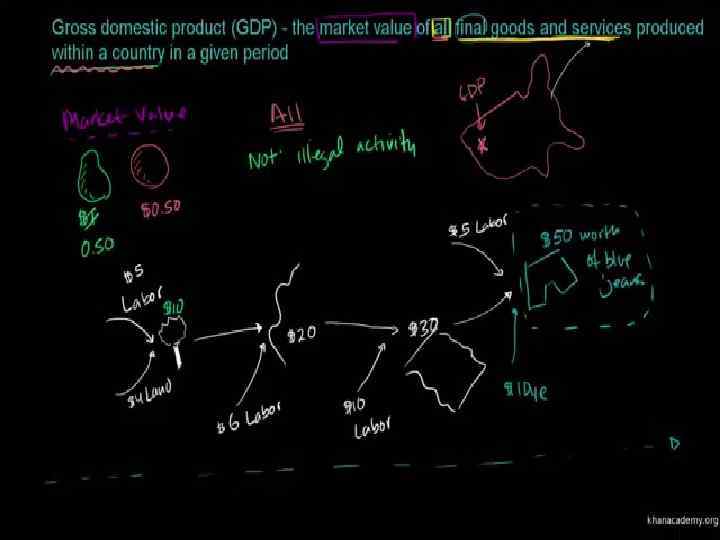 Gross domestic product (GDP) - the market value of all final goods and services produced
within a country in a given period
Market Value
All
GDP
Not: illegal activity
$1
$0.50
0.50
$5 Labor
$50 worth
of blue
jeans
$5
Labor
$10
$20
$30
$4 Land
$6 Labor
$10
Labor
$1 Dye
khanacademy.org